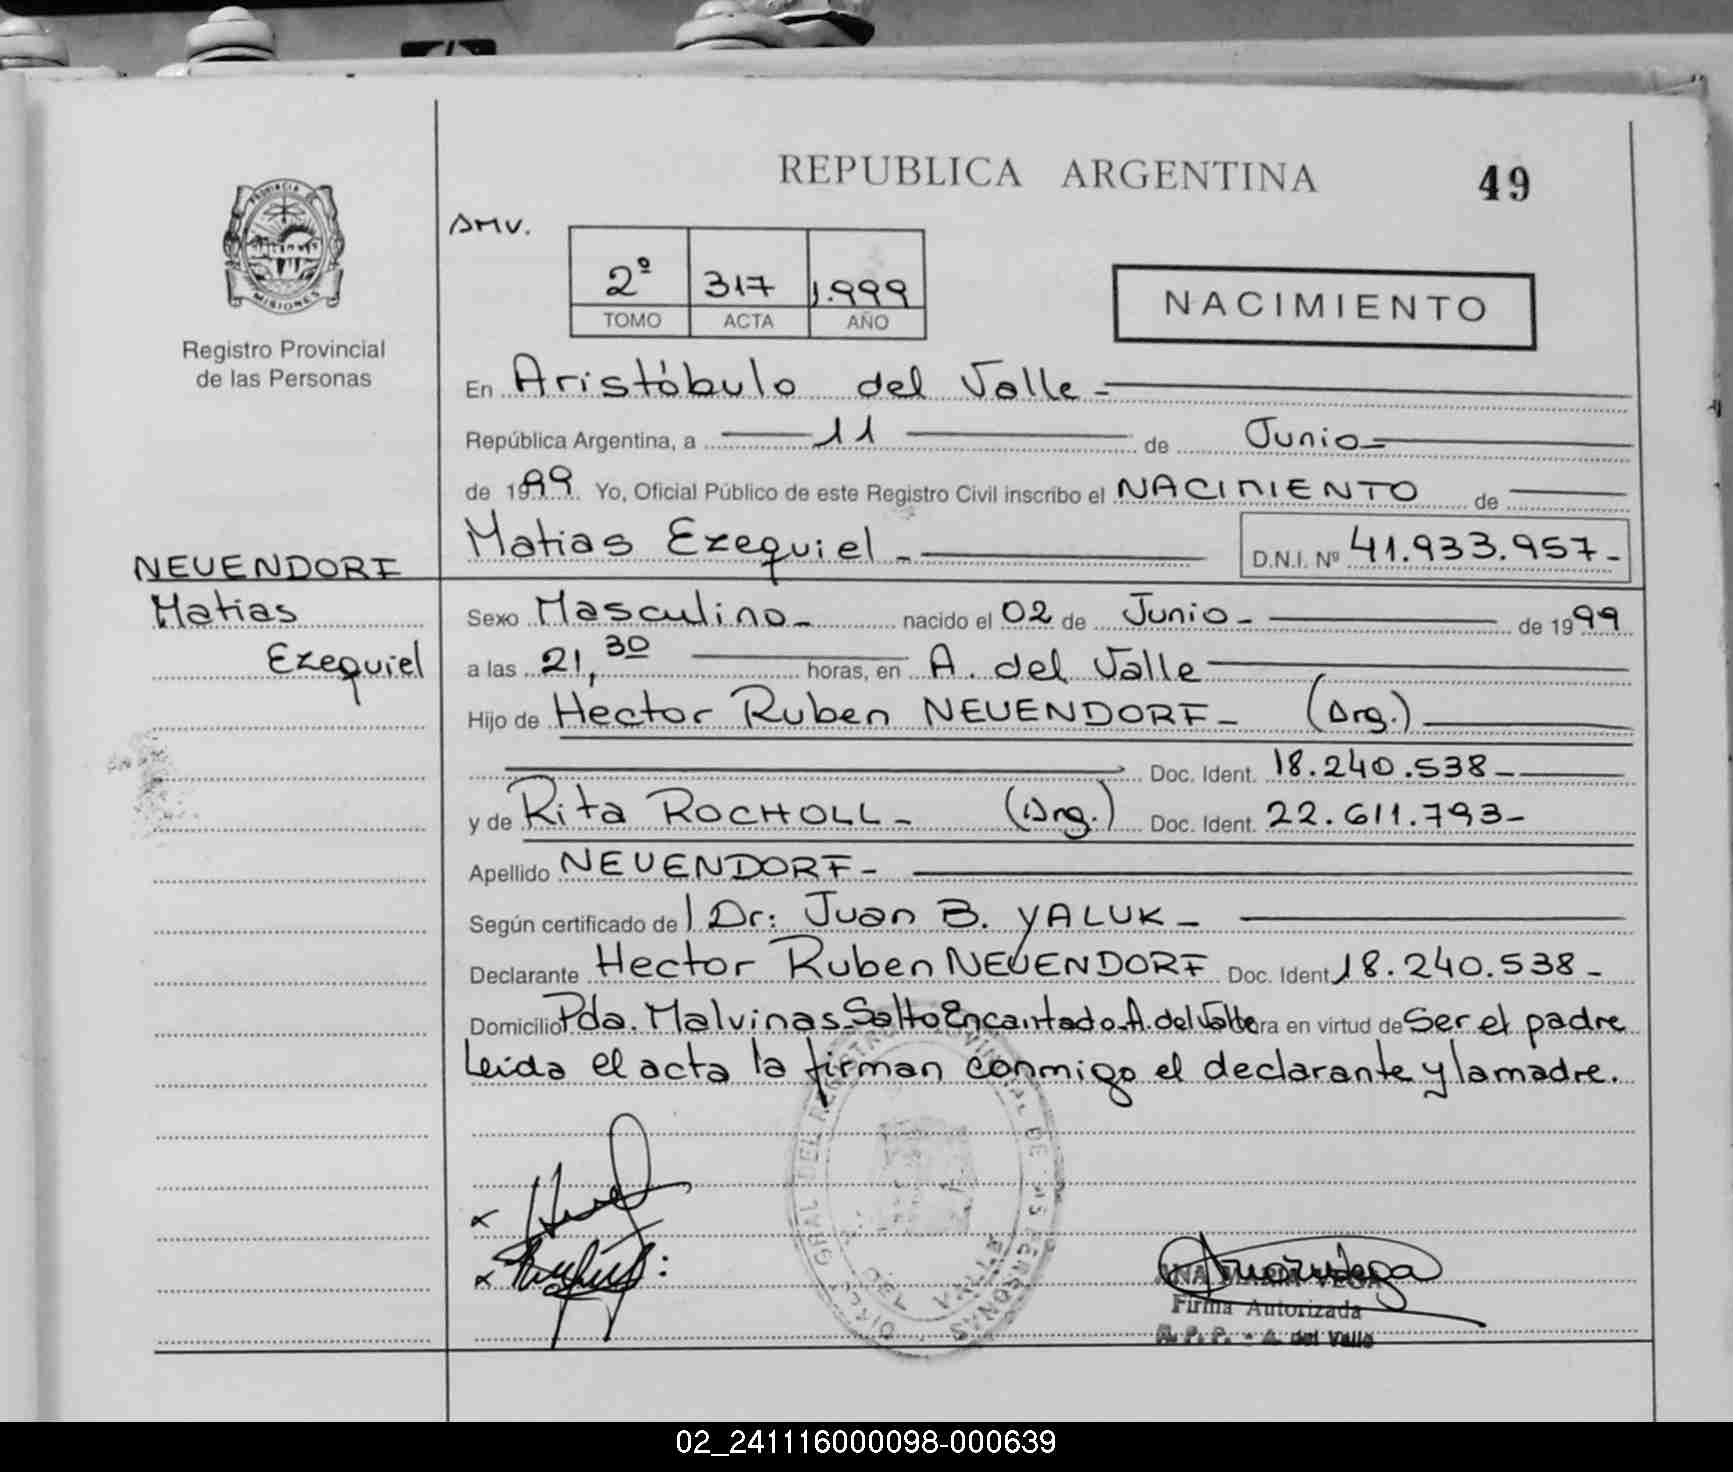 REPUBLICA ARGENTINA
49
PROVINCIA DE
MISIONES
Registro Provincial
de las Personas
AMV.
2º 317 1.999
TOMO ACTA AÑO
NACIMIENTO
En Aristóbulo del Valle -
República Argentina, a 11 de Junio -
de 1999 Yo, Oficial Público de este Registro Civil inscribo el NACIMIENTO de
Matias Ezequiel - D.N.I. Nº 41.933.957-
NEUENDORF
Matias
Ezequiel
Sexo Masculino - nacido el 02 de Junio - de 1999
a las 21,30 horas, en A. del Valle
Hijo de Hector Ruben NEUENDORF - (Arg.)
Doc. Ident. 18.240.538-
y de Rita ROCHOLL - (Arg.) Doc. Ident. 22.611.793-
Apellido NEUENDORF -
Según certificado de l Dr: Juan B. YALUK -
Declarante Hector Ruben NEUENDORF Doc. Ident. 18.240.538-
Domicilio Pda. Malvinas Salto Encantado A. del Valle ra en virtud de Ser el padre
Leida el acta la firman conmigo el declarante y la madre.
DIRECC. GRAL. DEL REGISTRO PROVINCIAL DE LAS PERSONAS
DEL VALLE
ANA MARIA VEGA
Firma Autorizada
R. P. P. - A. del Valle
02_241116000098-000639